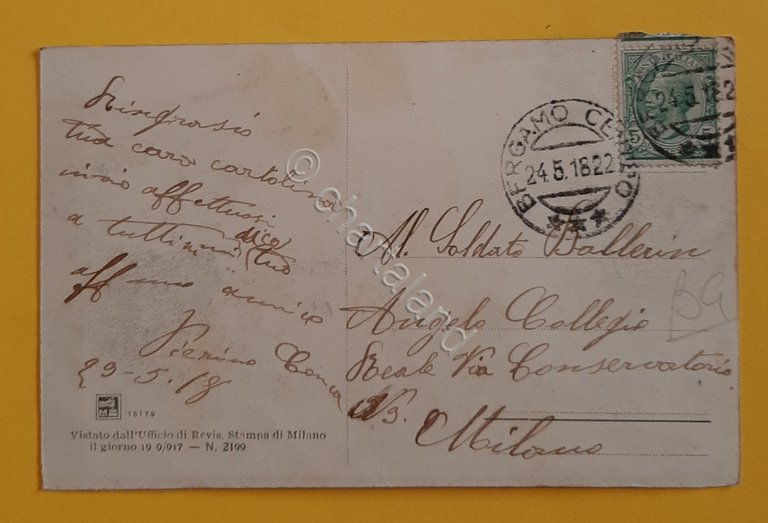 Ringrazio
tua cara cartolina
invio affettuosi
a tutti
tuo
aff amico
Pierino
29-5.18
15179
Vistato dall'Ufficio di Revis. Stampa di Milano
il giorno 19 9/917 — N. 2199
BERGAMO CENTRO
24.5.18 22
24.5.18 2
5
Al Soldato Ballerin
Angelo Collegio
Reale Via Conservatorio
Milano
BG
© chartaland